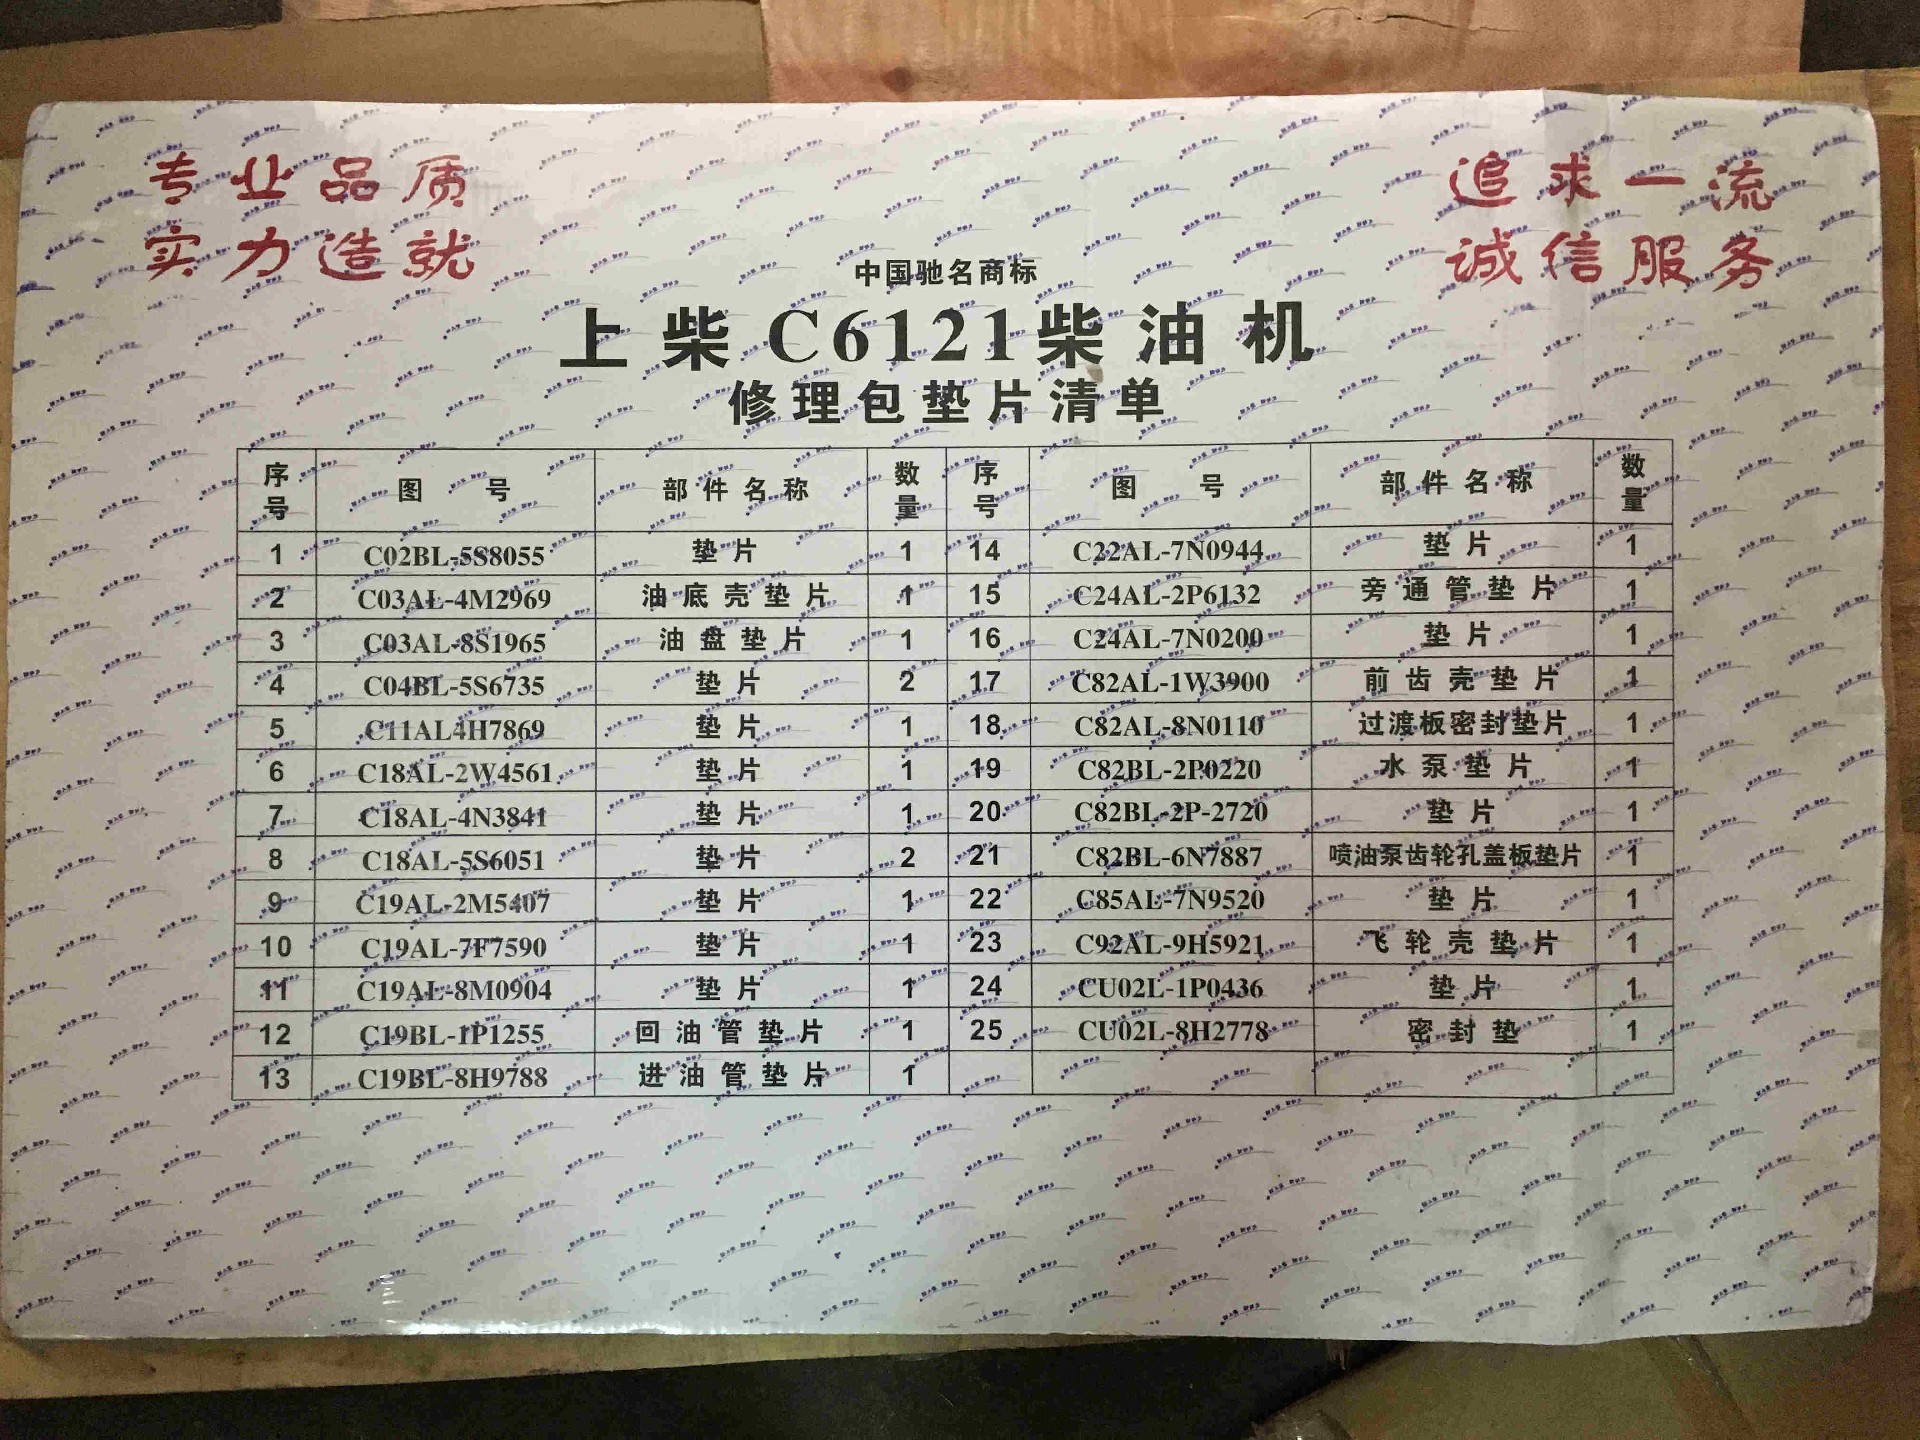 专业品质
实力造就
追求一流
诚信服务
中国驰名商标
上柴C6121柴油机
修理包垫片清单
序号 图号 部件名称 数量 序号 图号 部件名称 数量
1 C02BL-5S8055 垫片 1 14 C22AL-7N0944 垫片 1
2 C03AL-4M2969 油底壳垫片 1 15 C24AL-2P6132 旁通管垫片 1
3 C03AL-8S1965 油盘垫片 1 16 C24AL-7N0200 垫片 1
4 C04BL-5S6735 垫片 2 17 C82AL-1W3900 前齿壳垫片 1
5 C11AL4H7869 垫片 1 18 C82AL-8N0110 过渡板密封垫片 1
6 C18AL-2W4561 垫片 1 19 C82BL-2P0220 水泵垫片 1
7 C18AL-4N3841 垫片 1 20 C82BL-2P-2720 垫片 1
8 C18AL-5S6051 垫片 2 21 C82BL-6N7887 喷油泵齿轮孔盖板垫片 1
9 C19AL-2M5407 垫片 1 22 C85AL-7N9520 垫片 1
10 C19AL-7F7590 垫片 1 23 C92AL-9H5921 飞轮壳垫片 1
11 C19AL-8M0904 垫片 1 24 CU02L-1P0436 垫片 1
12 C19BL-1P1255 回油管垫片 1 25 CU02L-8H2778 密封垫 1
13 C19BL-8H9788 进油管垫片 1